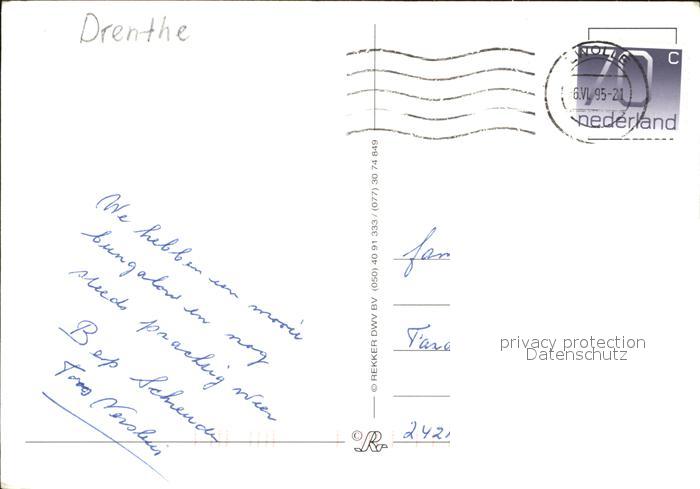 Drenthe
ZWOLLE
6.VI.95-21
70 C
nederland
We hebben een mooie
bungalow en nog
steeds prachtig weer
Bep Schreuder
Toos
© REKKER DWV BV (050) 40 91 333 / (077) 30 74 849
fam
privacy protection
Datenschutz
©